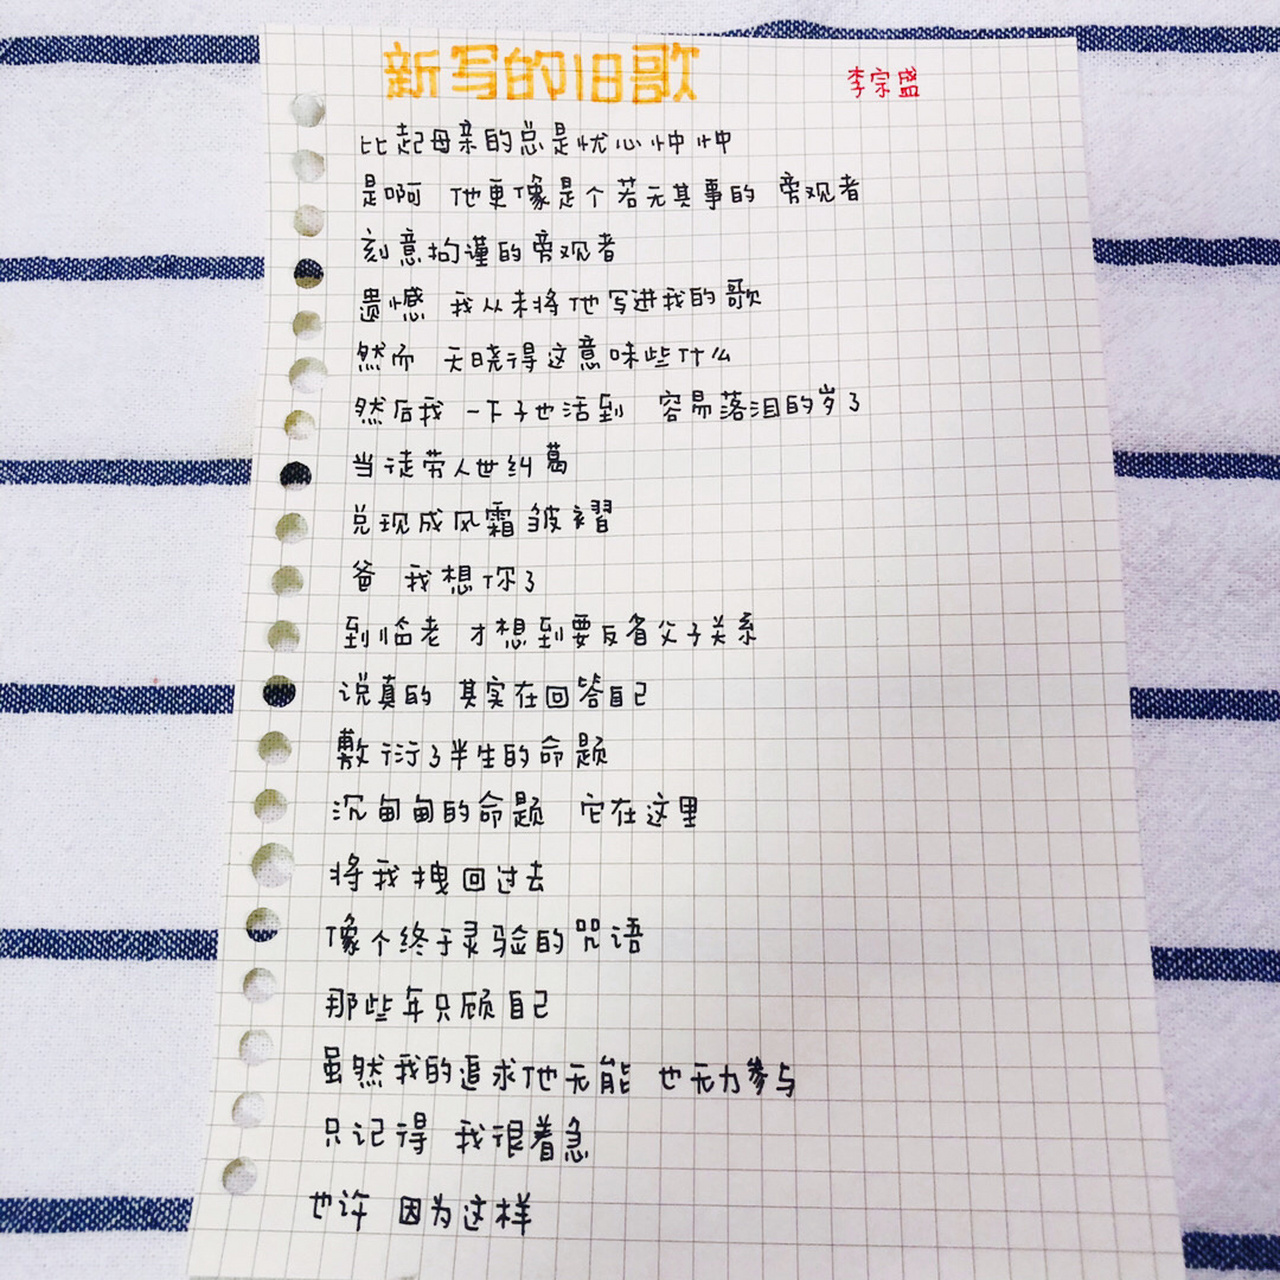 新写的旧歌 李宗盛
比起母亲的总是忧心忡忡
是啊 他更像是个若无其事的 旁观者
刻意拘谨的旁观者
遗憾 我从未将他写进我的歌
然而 天晓得这意味些什么
然后我 一下子也活到 容易落泪的岁了
当徒劳人世纠葛
兑现成风霜皱褶
爸 我想你了
到临老 才想到要反省父子关系
说真的 其实在回答自己
敷衍了半生的命题
沉甸甸的命题 它在这里
将我拽回过去
像个终于灵验的咒语
那些年只顾自己
虽然我的追求他无能 也无力参与
只记得 我很着急
也许 因为这样